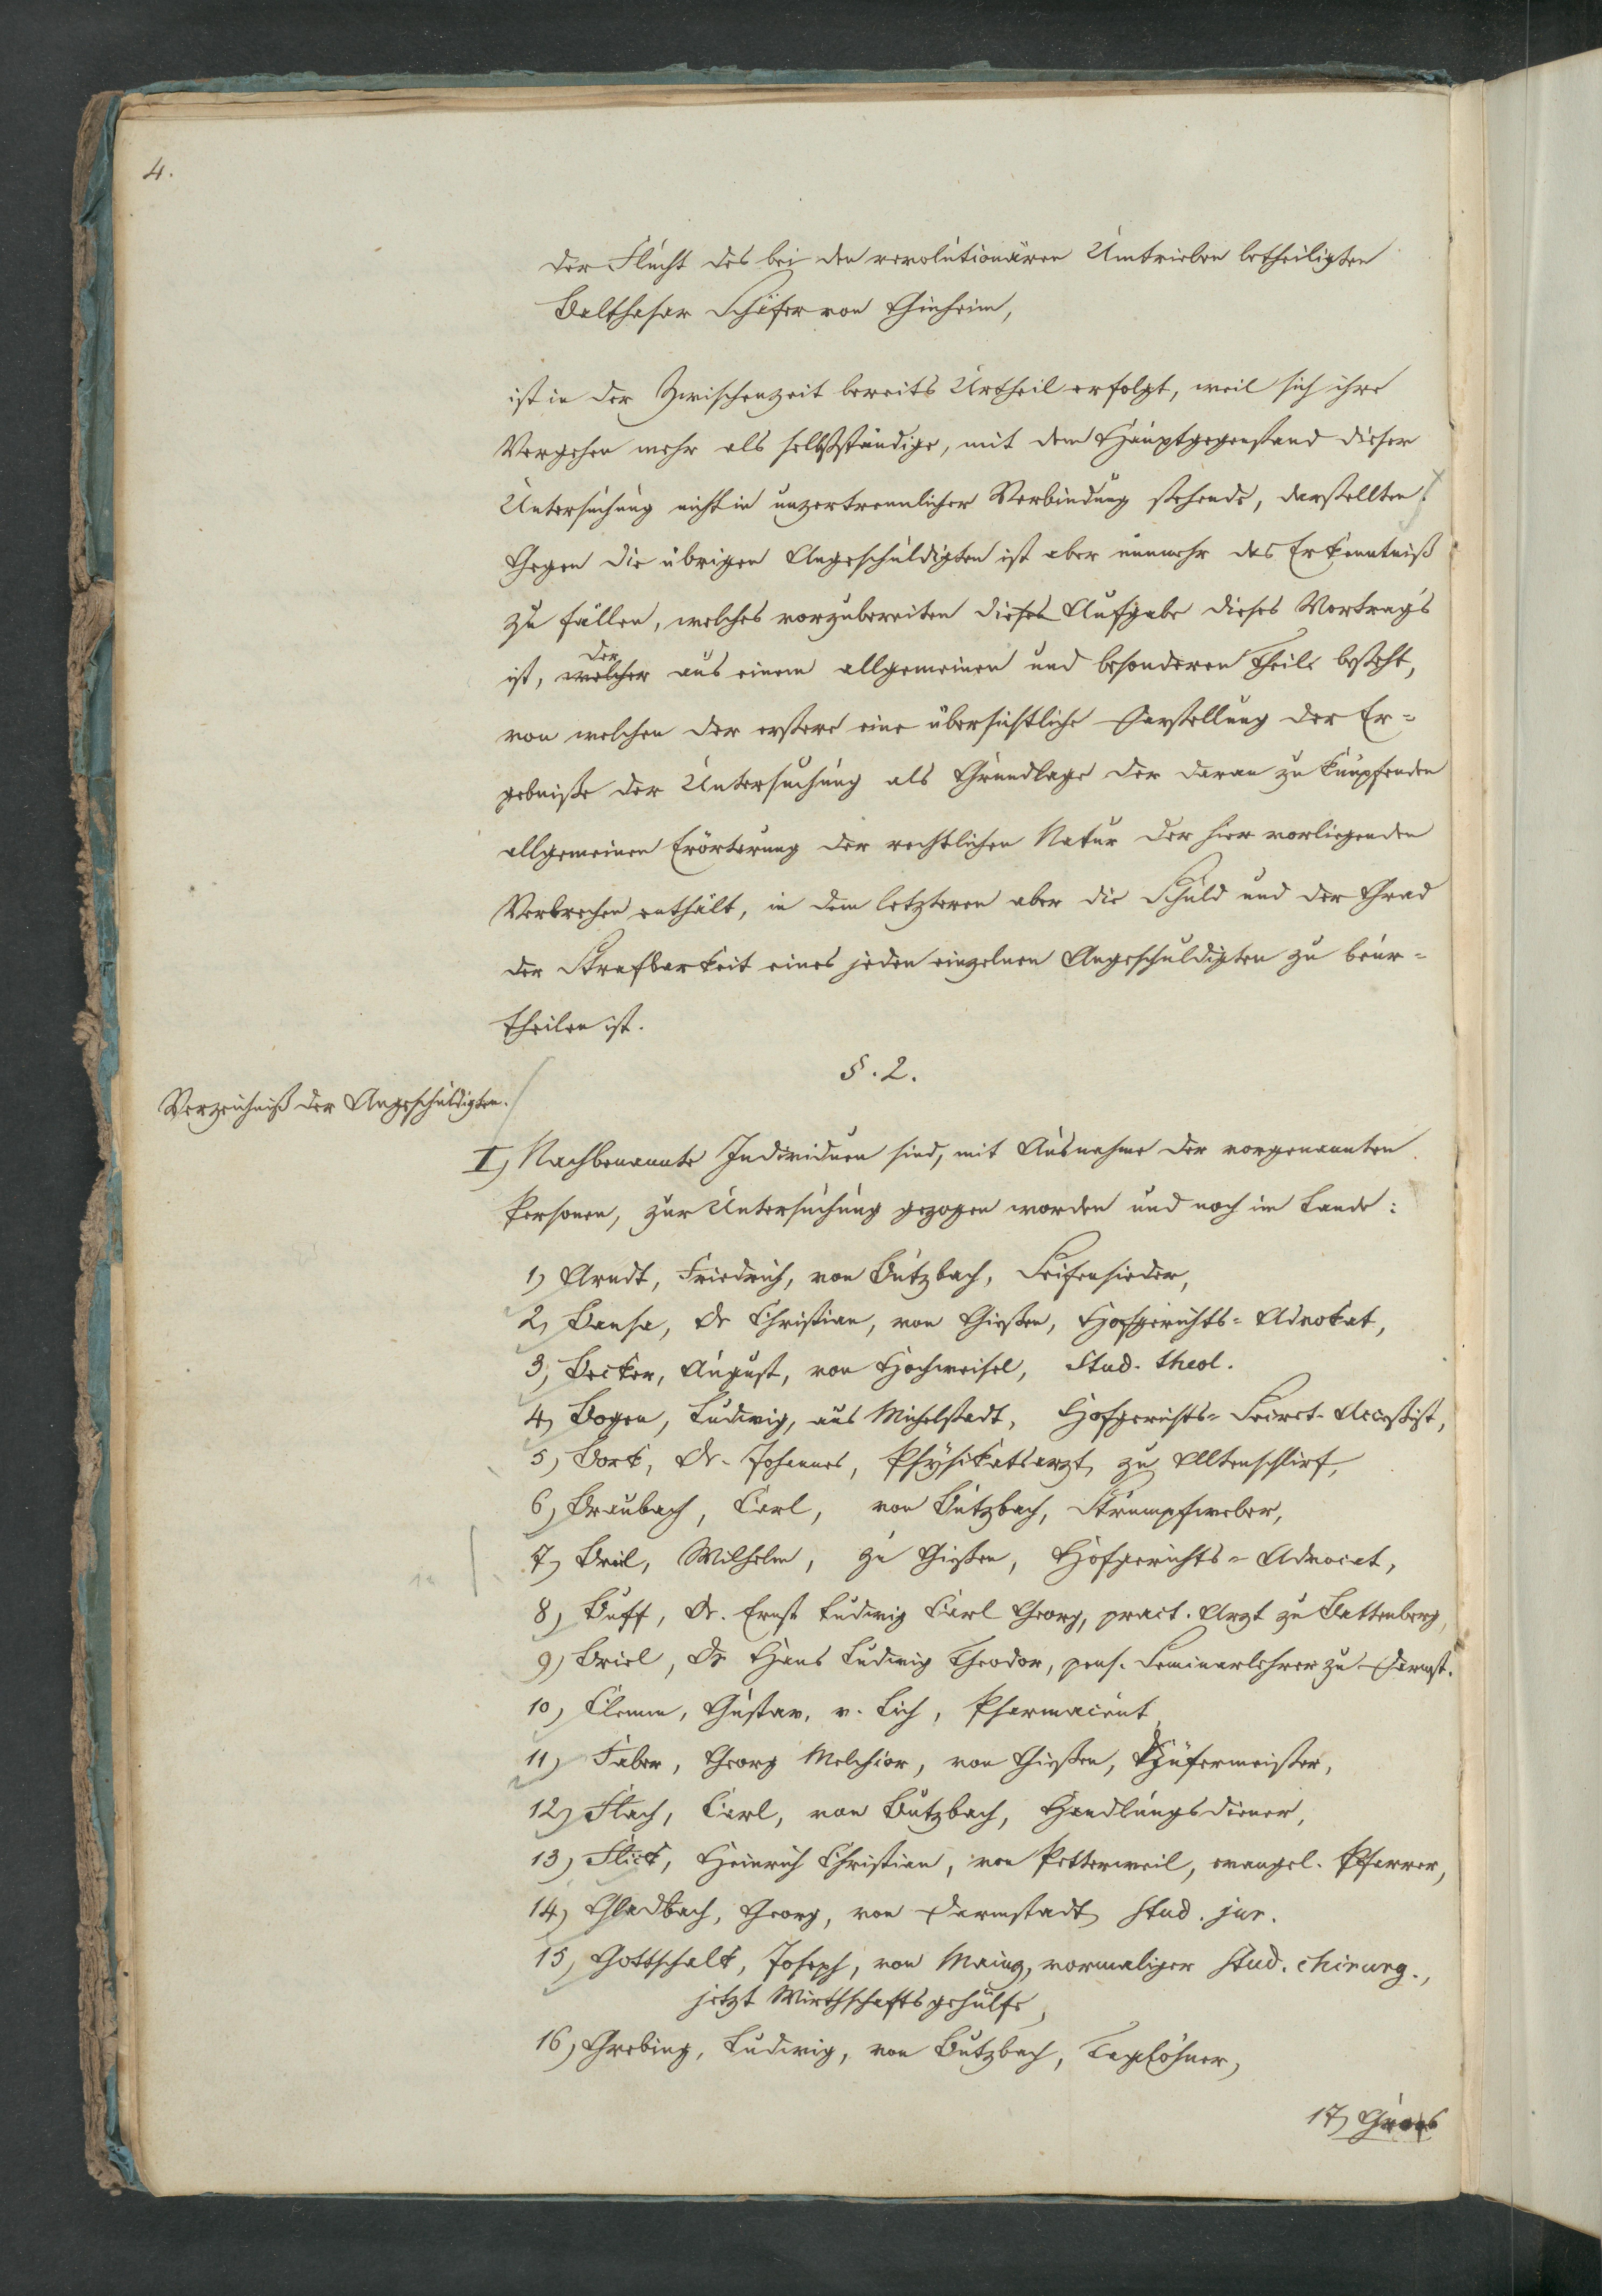 4.
der Flucht des bei den revolutionären Umtrieben betheiligten
Balthasar Schäfer von Ginheim,
ist in der Zwischenzeit bereits Urtheil erfolgt, weil sich ihre
Vergehen mehr als selbstständige, mit dem Hauptgegenstand dieser
Untersuchung nicht in unzertrennlicher Verbindung stehende, darstellten.
Gegen die übrigen Angeschuldigten ist aber nunmehr das Erkenntniß
zu fällen, welches vorzubereiten dieses Aufgabe dieses Vortrags
der
ist, welcher aus einem allgemeinen und besonderen Theile besteht,
von welchen der erstere eine übersichtliche Darstellung der Er=
gebniße der Untersuchung als Grundlage der daran zu knüpfenden
allgemeinen Erörterung der rechtlichen Natur der hier vorliegenden
Verbrechen enthält, in dem letzteren aber die Schuld und der Grad
der Strafbarkeit eines jeden einzelnen Angeschuldigten zu beur=
theilen ist.
§. 2.
Verzeichniß der Angeschuldigten.
I, Nachbenannte Individuen sind, mit Ausnahme der vorgenannten
Personen, zur Untersuchung gezogen worden und noch im Lande:
1) Arndt, Friedrich, von Butzbach, Seifensieder,
2, Bansa, Dr Christian, von Gießen, Hofgerichts= Advokat,
3, Becker, August, von Hochweisel, Stud. theol.
4, Bogen, Ludwig, aus Michelstadt, Hofgerichts= Secret. Acceßist,
5) Bork, Dr. Johannes, Physikatsarzt zu Altenschlirf,
6, Braubach, Carl, von Butzbach, Strumpfweber,
7, Briel, Wilhelm, zu Gießen, Hofgerichts= Advocat,
8, Buff, Dr. Ernst Ludwig Carl Georg, pract. Arzt zu Battenberg,
9) Briel, Dr Hans Ludwig Theodor, pens. Seminarlehrer zu Darmst.
10) Clemm, Gustav, v. Lich, Pharmaceut,
11) Faber, Georg Melchior, von Gießen, Küfermeister,
12) Flach, Carl, von Butzbach, Handlungsdiener,
13) Flick, Heinrich Christian, von Petterweil, evangel. Pfarrer,
14) Gladbach, Georg, von Darmstadt, stud. jur.
15) Gottschalk, Joseph, von Mainz, vormaliger stud. chirurg.,
jetzt Wirthschaftsgehülfe,
16, Grebing, Ludwig, von Butzbach, Taglöhner,
17,